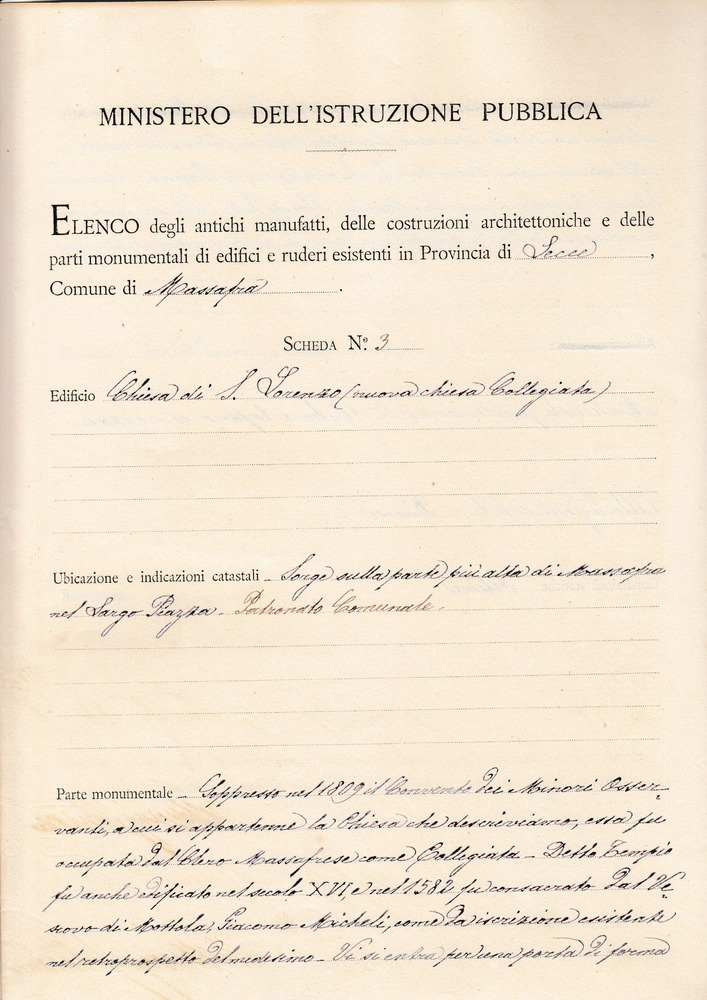 MINISTERO DELL'ISTRUZIONE PUBBLICA
ELENCO degli antichi manufatti, delle costruzioni architettoniche e delle
parti monumentali di edifici e ruderi esistenti in Provincia di Lecce,
Comune di Massafra.
SCHEDA N.º 3
Edificio Chiesa di S. Lorenzo (nuova chiesa Collegiata)
Ubicazione e indicazioni catastali - Sorge sulla parte più alta di Massafra
nel Largo Piazza - Patronato Comunale.
Parte monumentale - Soppresso nel 1809 il Convento dei Minori Osser-
vanti, a cui si appartenne la Chiesa che descriviamo, essa fu
occupata dal Clero Massafrese come Collegiata - Detto Tempio
fu anche edificato nel secolo XVI, e nel 1582 fu consacrato dal Ve-
scovo di Mottola, Giacomo Micheli, come da iscrizione esistente
nel retroprospetto del medesimo - Vi si entra per una porta di forma